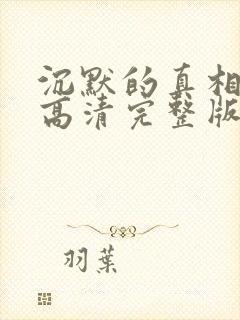 沉默的真相
高清完整版
羽葉